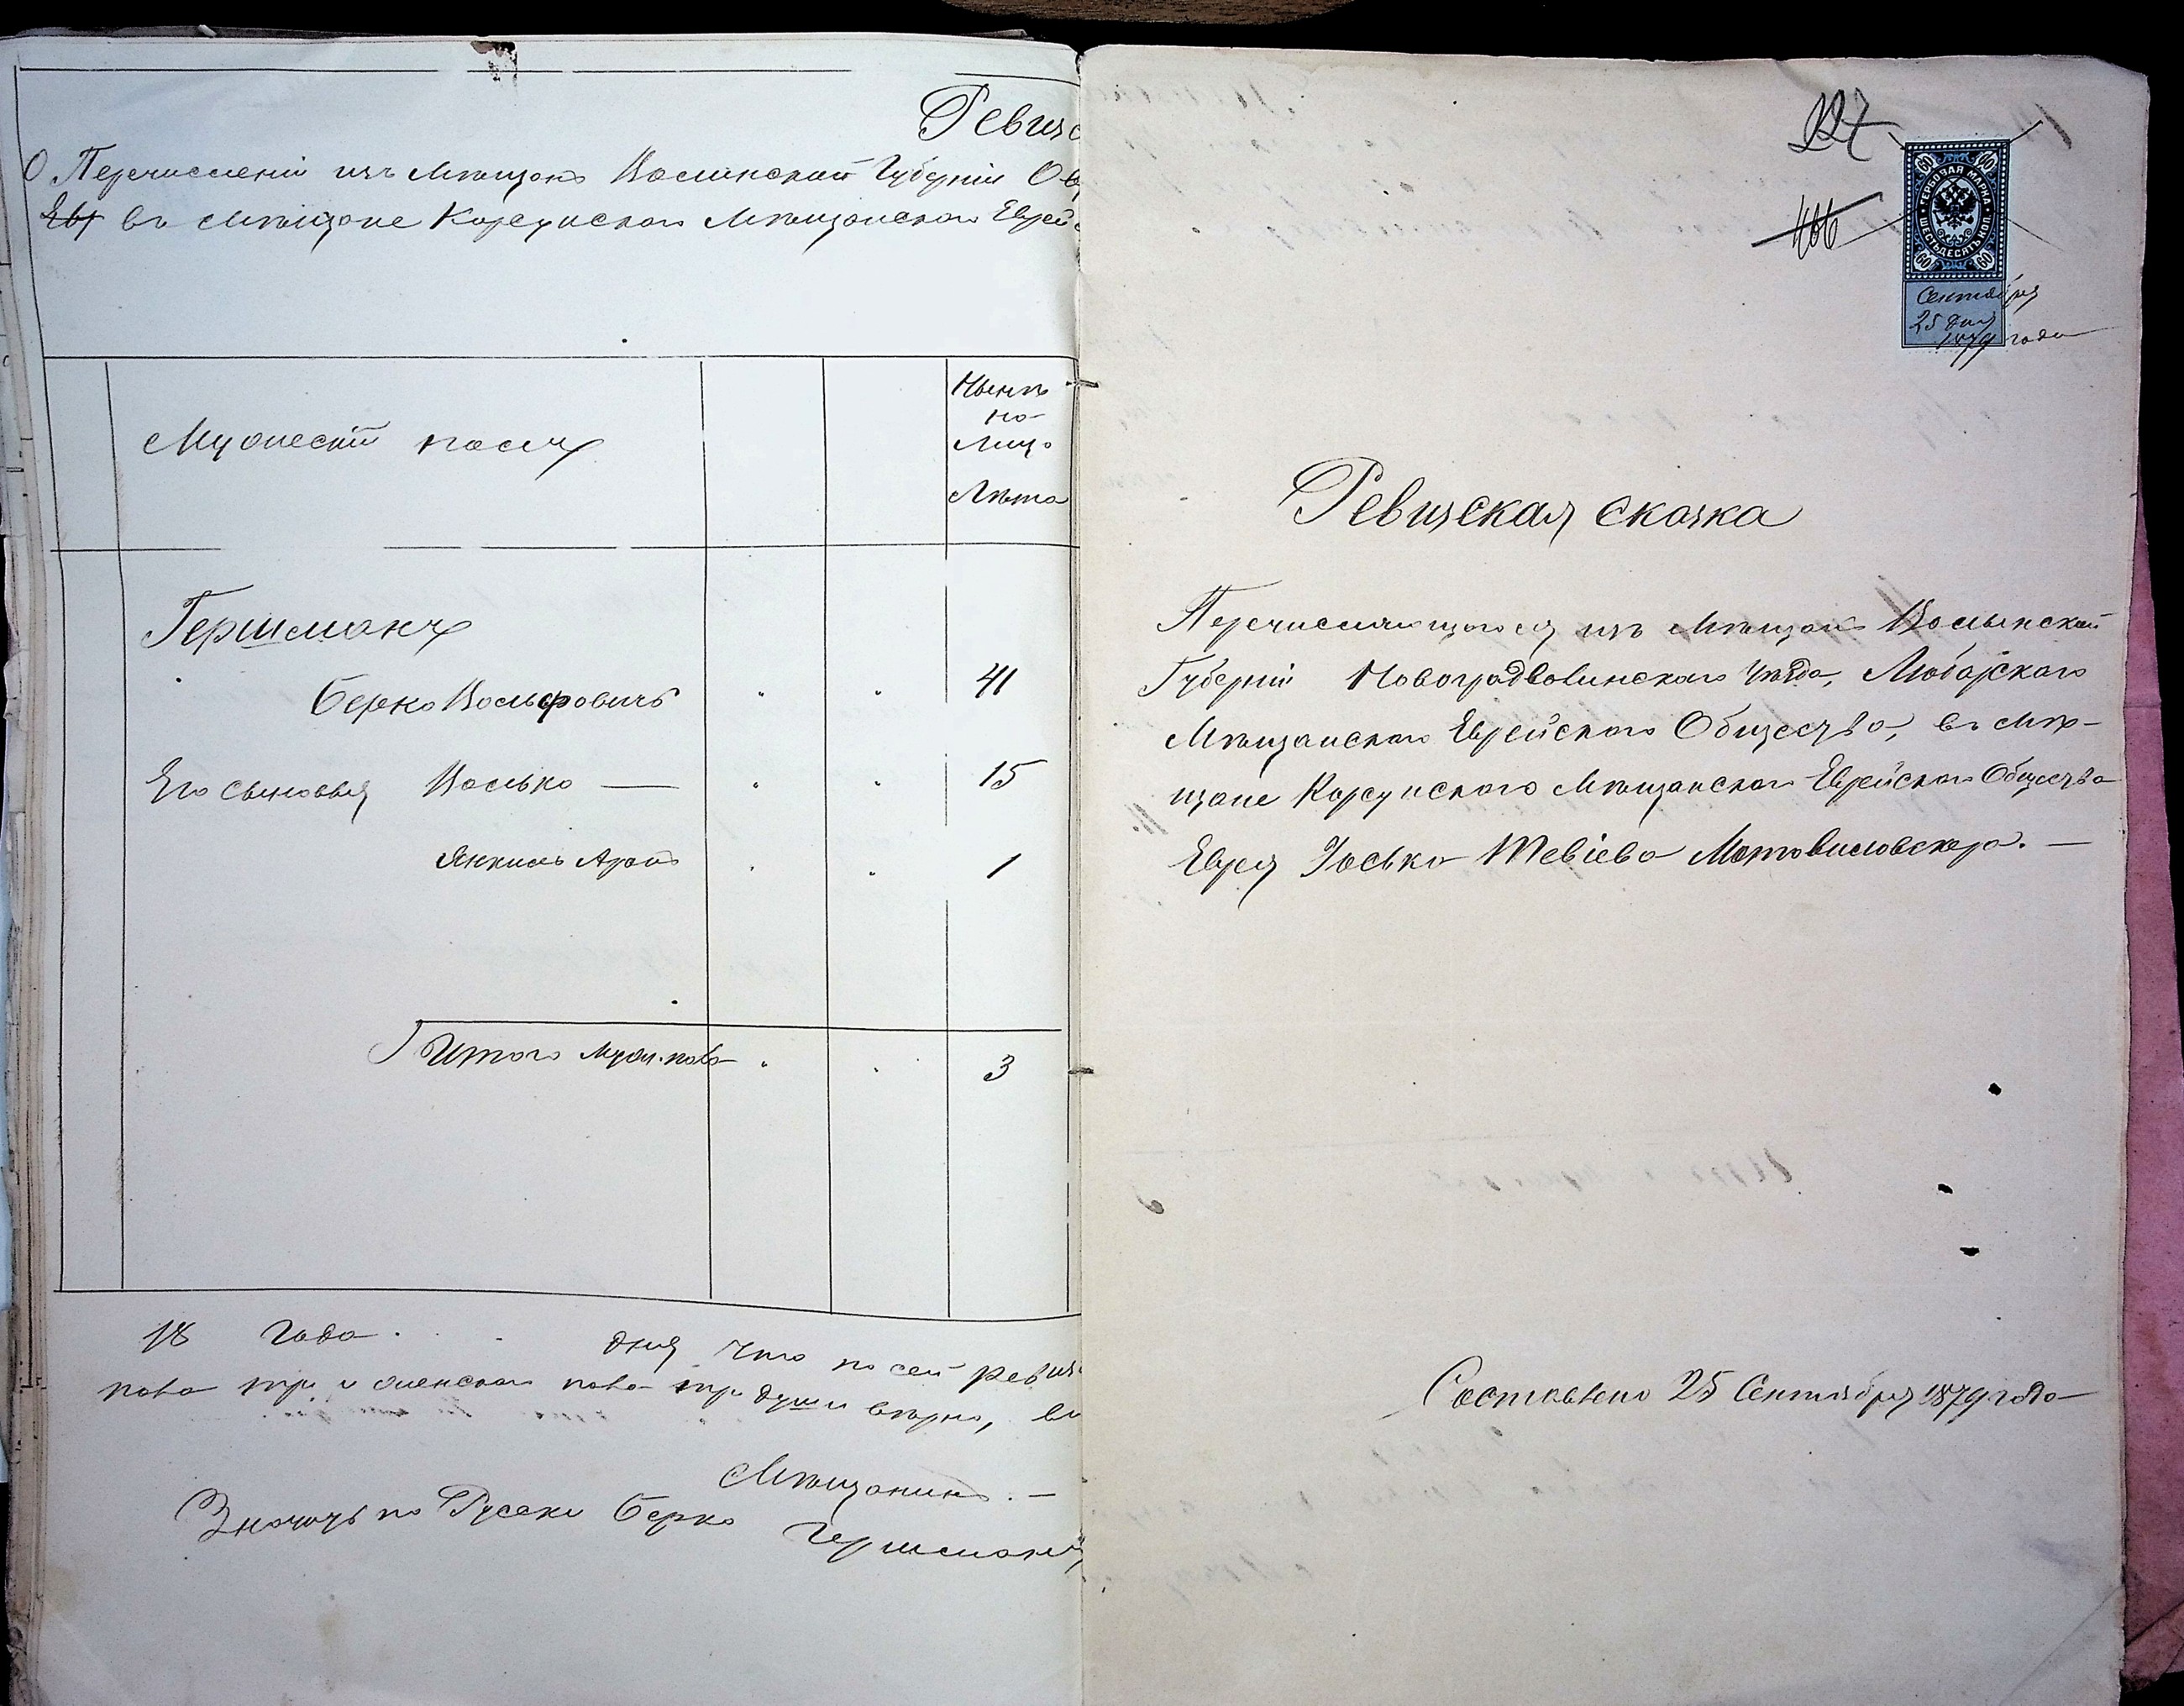 Ревизс
О Перечислении изъ Мѣщанъ Волинской Губерніи Ов
въ мѣщане Корсунского Мѣщанского Еврей
Мужескій полъ
Нынѣ
на-
лицо
Лѣта
Гершманъ
Берко Вольфовичъ " " 41
Его сыновья Волько — " " 15
Янкиль Аронъ " " 1
Итого муж. пола " " 3
18 года дня что по сей ревиз
пола три и женскаго пола три души вѣрно, въ
Мѣщанинъ. —
по Руски Берко Гершманъ
227
466
ГЕРБОВАЯ МАРКА
ШЕСТЬДЕСЯТЪ КОП.
60 60
60 60
Сентября
25 дня
1879 года
Ревизская сказка
Перечисляющагося изъ Мѣщанъ Волынской
Губерніи Новоградволинского Уѣзда, Любарского
Мѣщанского Еврейского Общества, въ Мѣ-
щане Корсунского Мѣщанского Еврейского Общества
Еврея Юсько Тевіева Мотовиловскера. —
Составлена 25 Сентября 1879 года